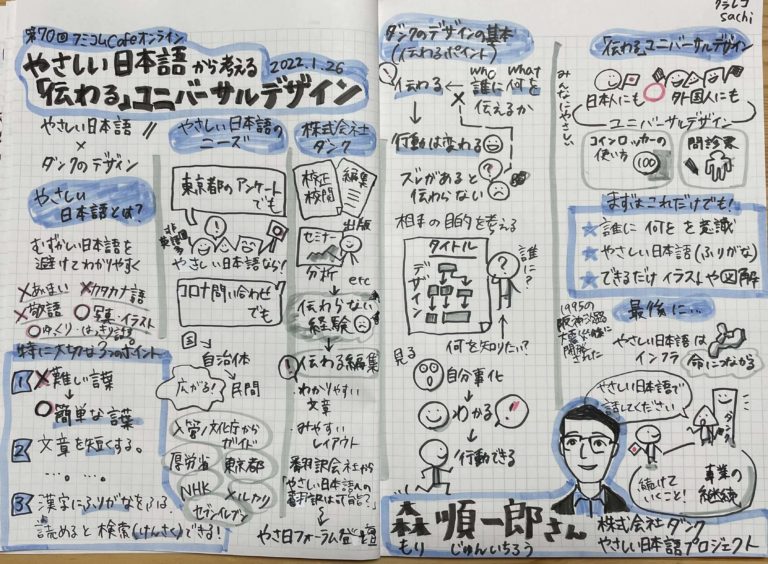 第70回 クミコムCafeオンライン
やさしい日本語から考える
2022.1.26
「伝わる」ユニバーサルデザイン
やさしい日本語
×
ダンクのデザイン
やさしい
日本語とは?
むずかしい日本語を
避けてわかりやすく
×あいまい ×カタカナ語
×敬語 ○写真・イラスト
○ゆっくり・はっきり話す
特に大切な3つのポイント
1 ×難しい言葉
↓
○簡単な言葉
2 文章を短くする。
…。…。
3 漢字にふりがなをふる。
読めると検索(けんさく)できる!
やさしい日本語の
ニーズ
東京都のアンケート
でも
やさしい日本語なら!
コロナ問い合わせ
でも
国
自治体
民間
広がる!
入管/文化庁から
ガイドが
厚労省
東京都
NHK
メルカリ
セブンイレブン
株式会社
ダンク
校正
校閲
編集
出版
セミナー
分析
etc
伝わらない
経験
↓
伝わる編集
わかりやすい
文章
みやすい
レイアウト
翻訳会社から
「やさしい日本語への
翻訳は可能?」
↓
やさ日フォーラム登壇
ダンクのデザインの基本
(伝わるポイント)
who what
伝わる ← 誰に何を
伝えるか
×
行動は変わる
ズレがあると
伝わらない
相手の目的を考える
タイトル
デザイン
誰に?
何を知りたい?
見る
自分事化
↓
わかる
↓
行動できる
クラレコ
sachi
「伝わる」ユニバーサルデザイン
みんなにやさしい
日本人にも 外国人にも
ユニバーサルデザイン
コインロッカーの
使い方
100
問診票
まずはこれだけでも!
★誰に何をを意識
★やさしい日本語(ふりがな)
★できるだけイラストや図解
1995の
阪神淡路
大震災を機に
開発
された
最後に…
やさしい日本語は
インフラ
命につながる
やさしい日本語で
話してください
ダンク
続けて
いくこと!
事業の
継続
森 順一郎さん
もり じゅんいちろう
株式会社ダンク
やさしい日本語プロジェクト